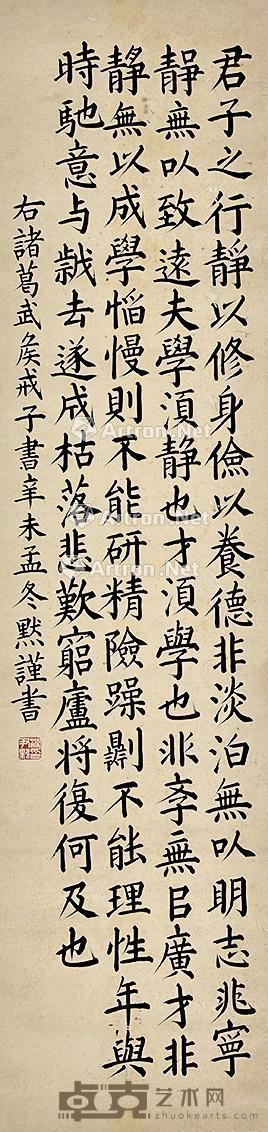 君子之行靜以修身儉以養德非淡泊無以明志非寧
靜無以致遠夫學須靜也才須學也非學無以廣才非
靜無以成學慆慢則不能研精險躁則不能理性年與
時馳意与歲去遂成枯落悲歎窮廬將復何及也
右諸葛武矦戒子書辛未孟冬默謹書
Artron.Net
Artron.Net
Artron.Net
Artron.Net
卓克艺术网
zhuokearts.com